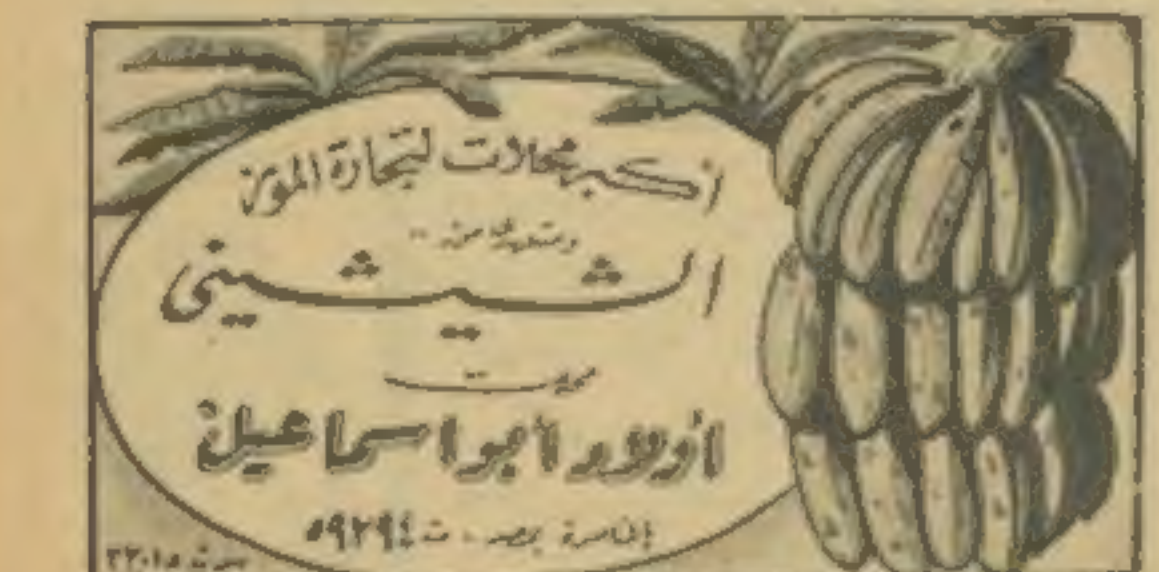 أكبر محلات لتجارة الموز
الشيشينى
أولاد أبو اسماعيل
الناصرة بمصر - ت ٥٩٢٩٤